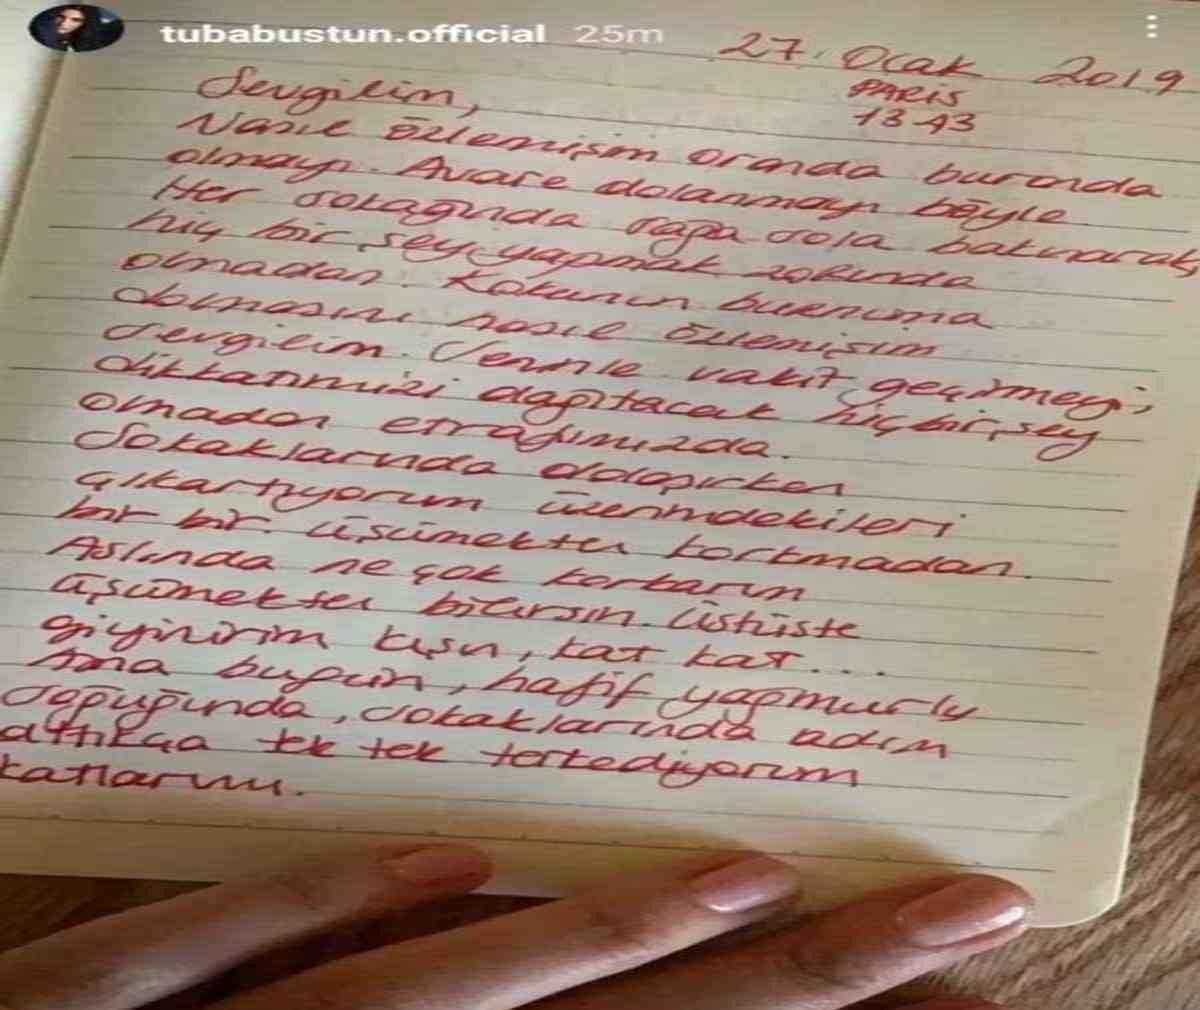 tubabustun.official 25m
27. Ocak 2019
PARİS
13.43
Sevgilim,
Nasıl özlemişim oranda buranda
olmayı. Avare dolanmayı böyle
Her sokağında sağa sola bakınarak,
hiç bir şey yapmak zorunda
olmadan. Kokunun burnuma
dolmasını nasıl özlemişim
sevgilim. Seninle vakit geçirmeyi,
dikkatimizi dağıtacak hiçbir şey
olmadan etrafımızda.
Sokaklarında dolaşırken
çıkartıyorum üzerimdekileri
bir bir. Üşümekten korkmadan.
Aslında ne çok korkarım
üşümekten bilirsin. Üstüste
giyinirim kışın, kat kat....
Ama bugün, hafif yağmurlu
soğuğunda, sokaklarında adım
attıkça tek tek terkediyorum
katlarımı.